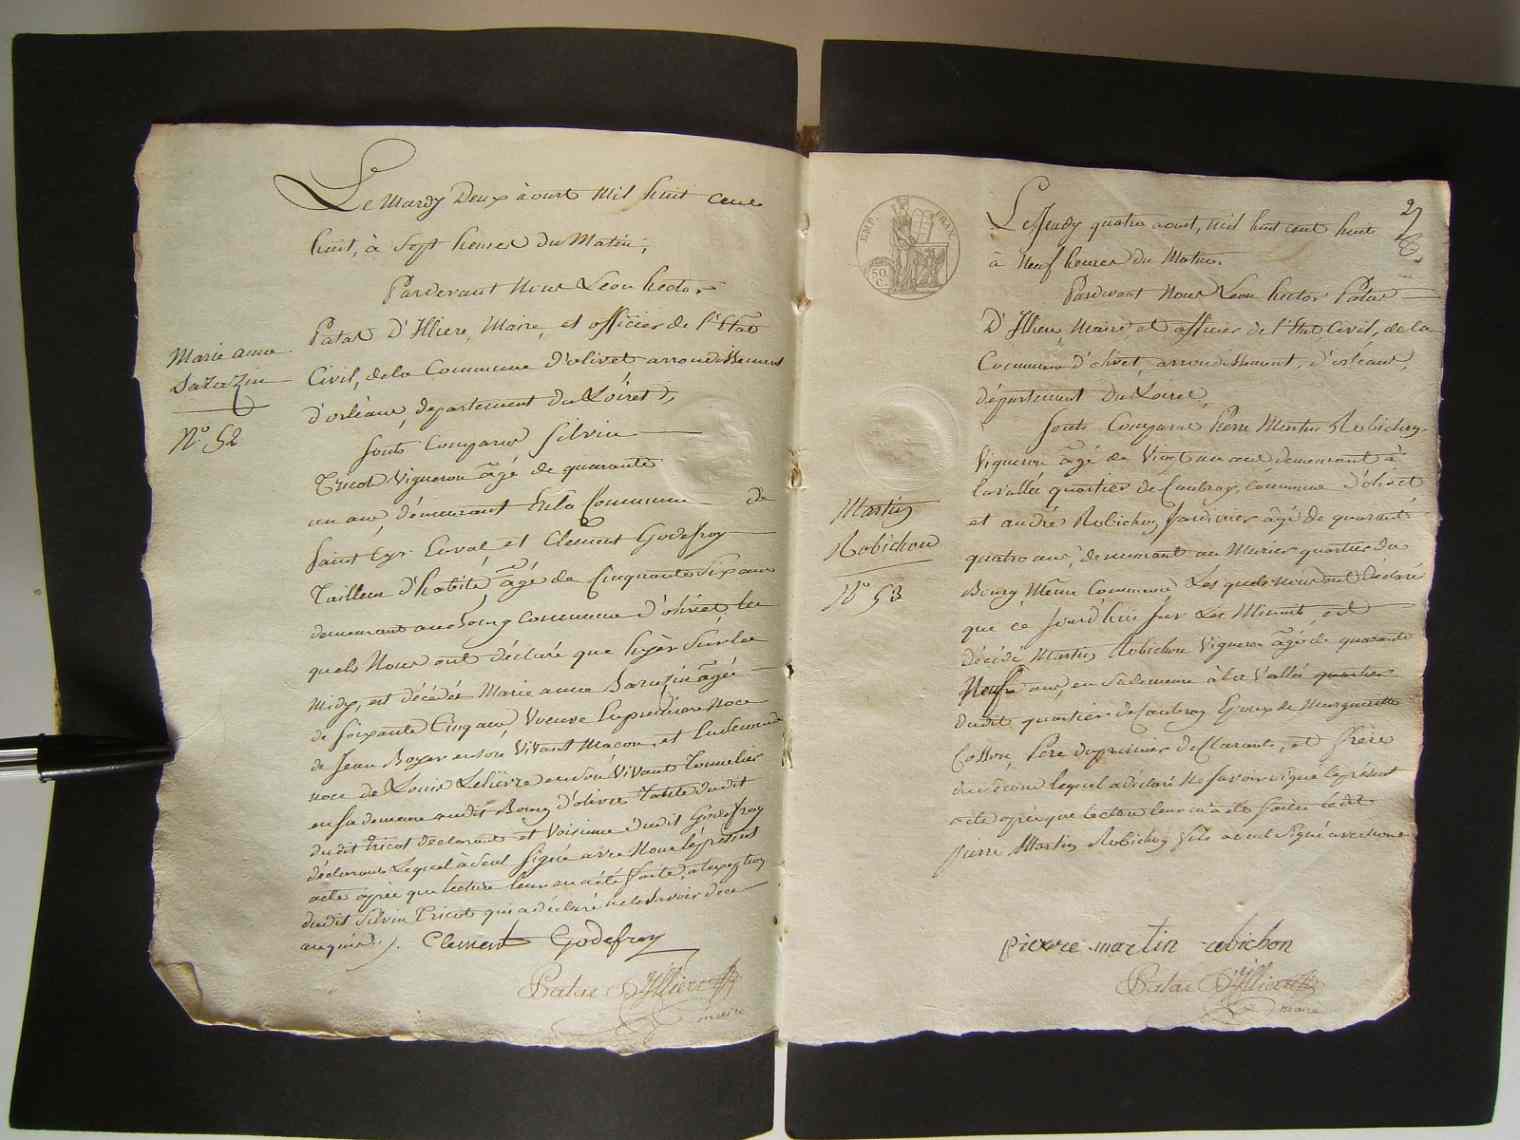 Le Mardy Deux aoust Mil huit cent
huit, à Sept heures du Matin,
Pardevant Nous Léon hector
Patas D'Illiers, Maire, et officier de l'Etat
Civil, de la Commune d'olivet arrondissement
d'orléans, département du Loiret,
Sont Comparus Silvin
Tricot Vigneron âgé de quarante
un ans, demeurant En la Commune de
Saint Cyr En val et Clement Godefroy
Tailleur d'habits, âgé de Cinquante Six ans
demeurant au Bourg Commune d'olivet, les
quels Nous ont déclaré que hyer Sur les
Midy, est décédée Marie anne Sarazin âgée
de Soixante Cinq ans, Veuve En première Noce
de Jean Boyer en son Vivant Macon, et En seconde
noce de Louis Lelièvre en son Vivant Tonnelier
en sa demeure audit Bourg d'olivet Tante dudit
dudit Tricot déclarant et Voisinne dudit Godefroy
déclarant Lequel a Seul Signé avec Nous le présent
acte après que lecture leur en a été faite, à l'exception
dudit Silvin Tricot qui a déclaré ne le Savoir de ce
enquis ./.
Clement Godefroy
Patas D'Illiers
maire
Marie anne
Sarazin
N° 52
27
EMP. FRAN.
50 C.
Le Jeudy quatre aoust, Mil huit cent huit
à Neuf heures du Matin.
Pardevant Nous Léon hector Patas
D'Illiers, Maire, et officier de l'Etat Civil, de la
Commune d'olivet, arrondissement, d'orléans,
département Du Loiret,
Sont Comparus Pierre Martin Robichon
Vigneron âgé de Vingt un ans demeurant à
la vallée quartier de Caubray, Commune d'olivet
et andré Robichon Jardinier âgé de quarante
quatre ans, demeurant au Murier quartier du
Bourg Même Commune, Lesquels nous ont Déclaré
que ce Jourd'hui Sur Les Minuit, est
Décédé Martin Robichon Vigneron âgé de quarante
Neuf ans, en Sa demeure à la Vallée quartier
dudit quartier de Caubray Epoux de Marguerite
Cosson, Père du premier déClarant, et frère
du Second lequel a déclaré Ne Savoir Signé le présent
acte après que lecture leur en a été faite ledit
Pierre Martin Robichon fils a Seul Signé avec nous
pierre martin robichon
Patas D'Illiers
maire
Martin
Robichon
N° 53